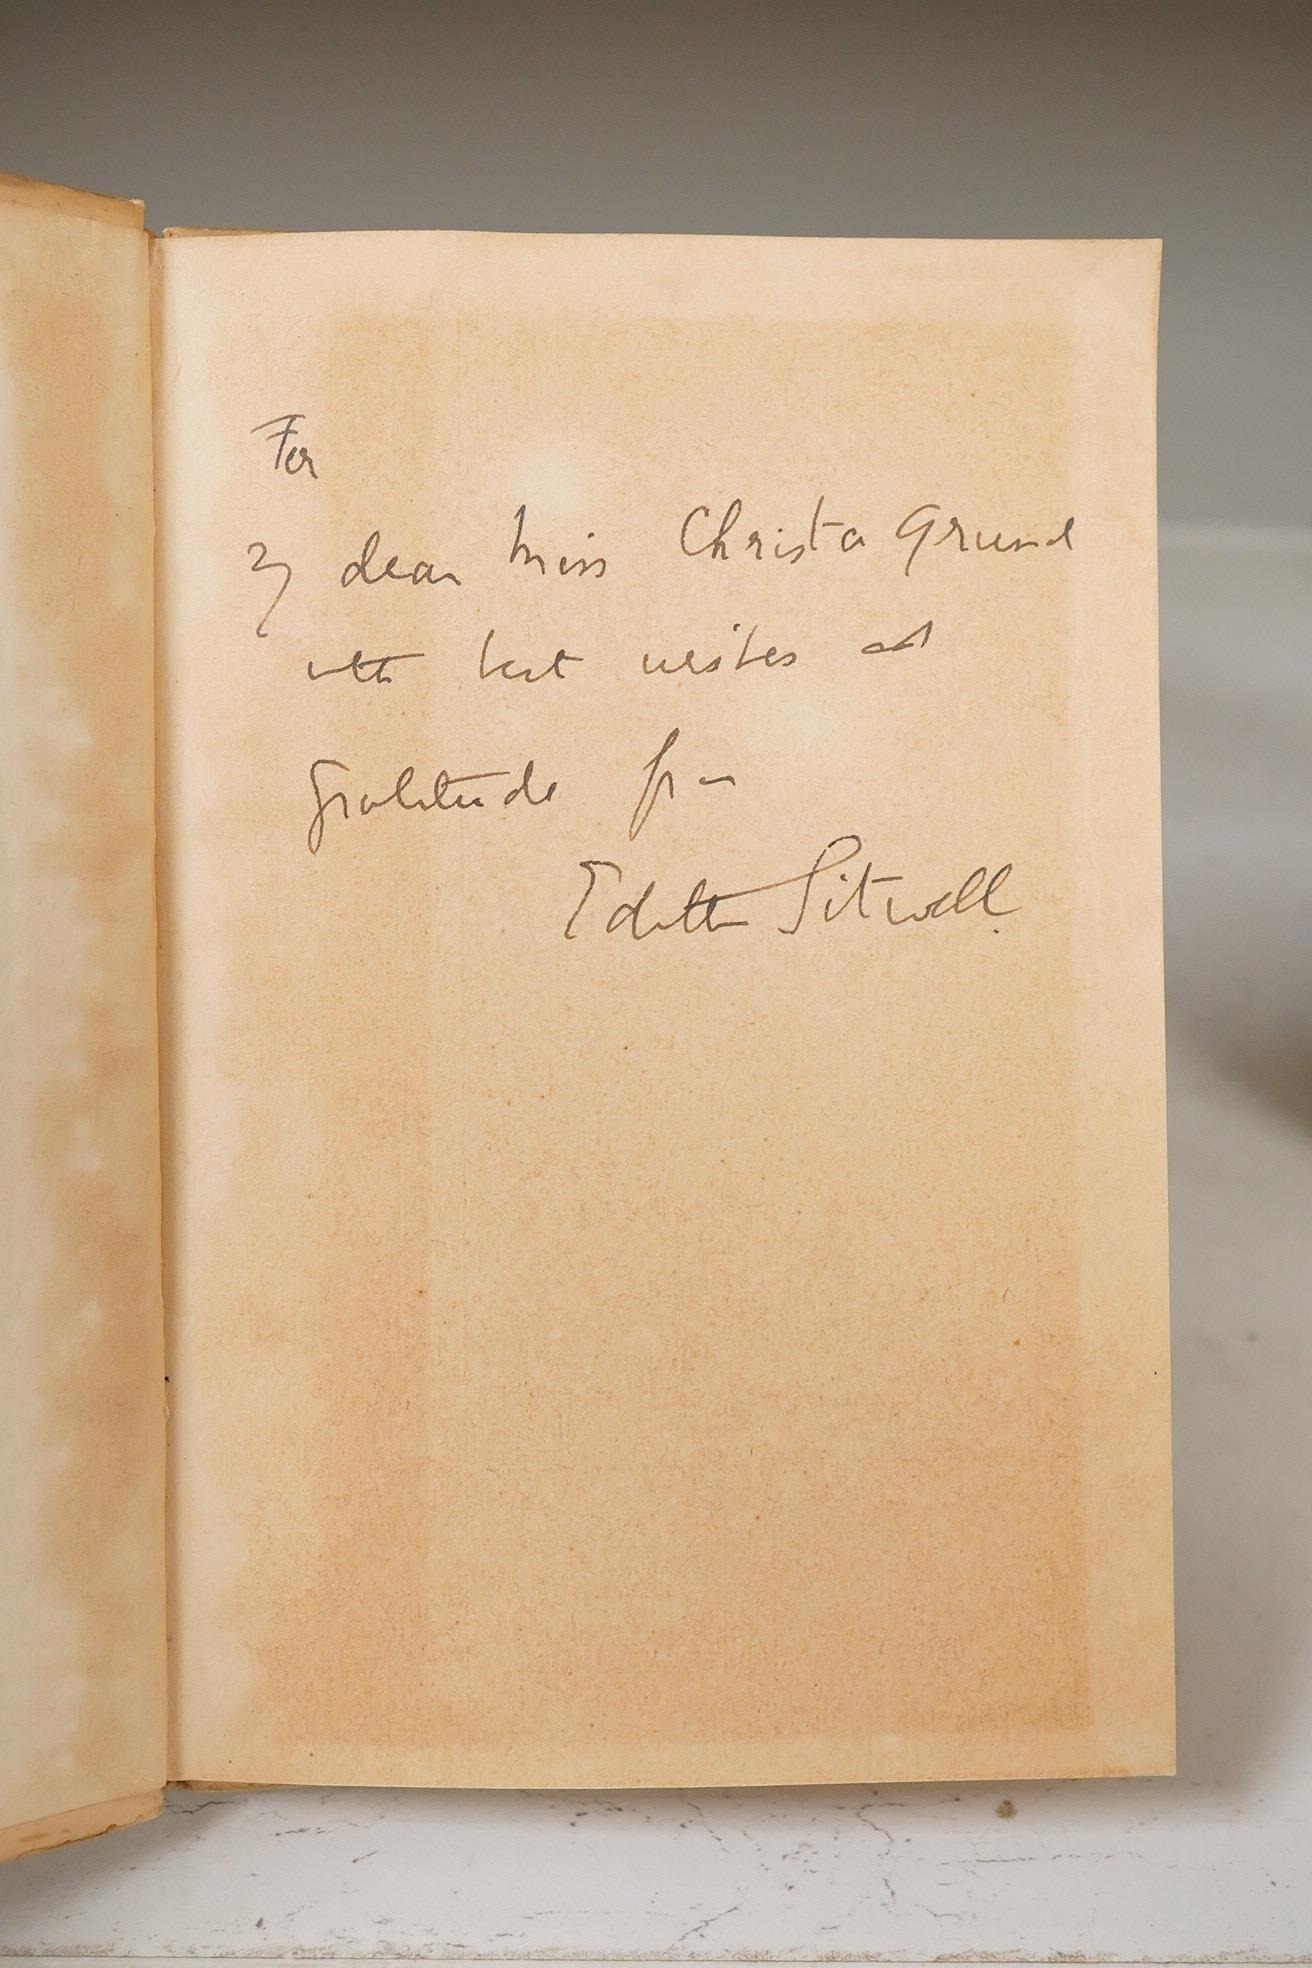 For
My dear Miss Christa Grund
with best wishes and
gratitude from
Edith Sitwell.